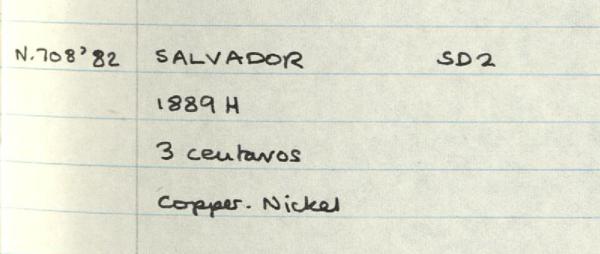 N.708'82 SALVADOR SD2
1889 H
3 centavos
Copper. Nickel